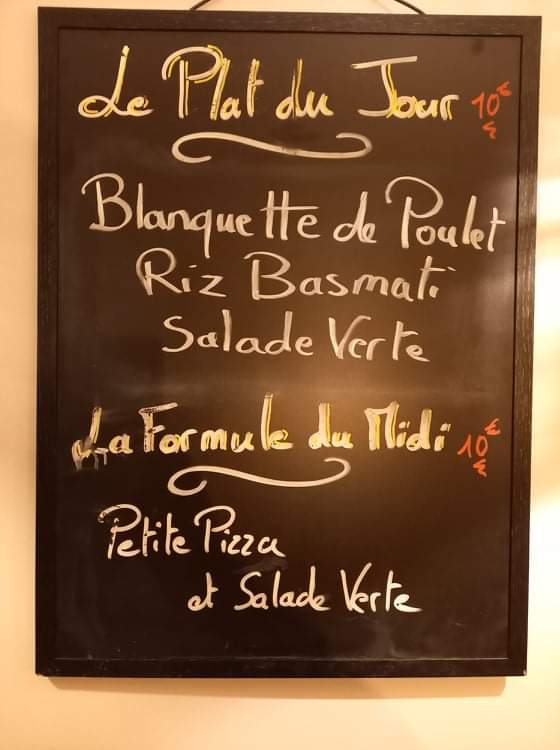 Le Plat du Jour 10€
Blanquette de Poulet
Riz Basmati
Salade Verte
La Formule du Midi 10€
Petite Pizza
et Salade Verte